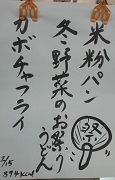 米粉パン
冬野菜のお祭り
うどん
祭
カボチャフライ
2/15
594kcal